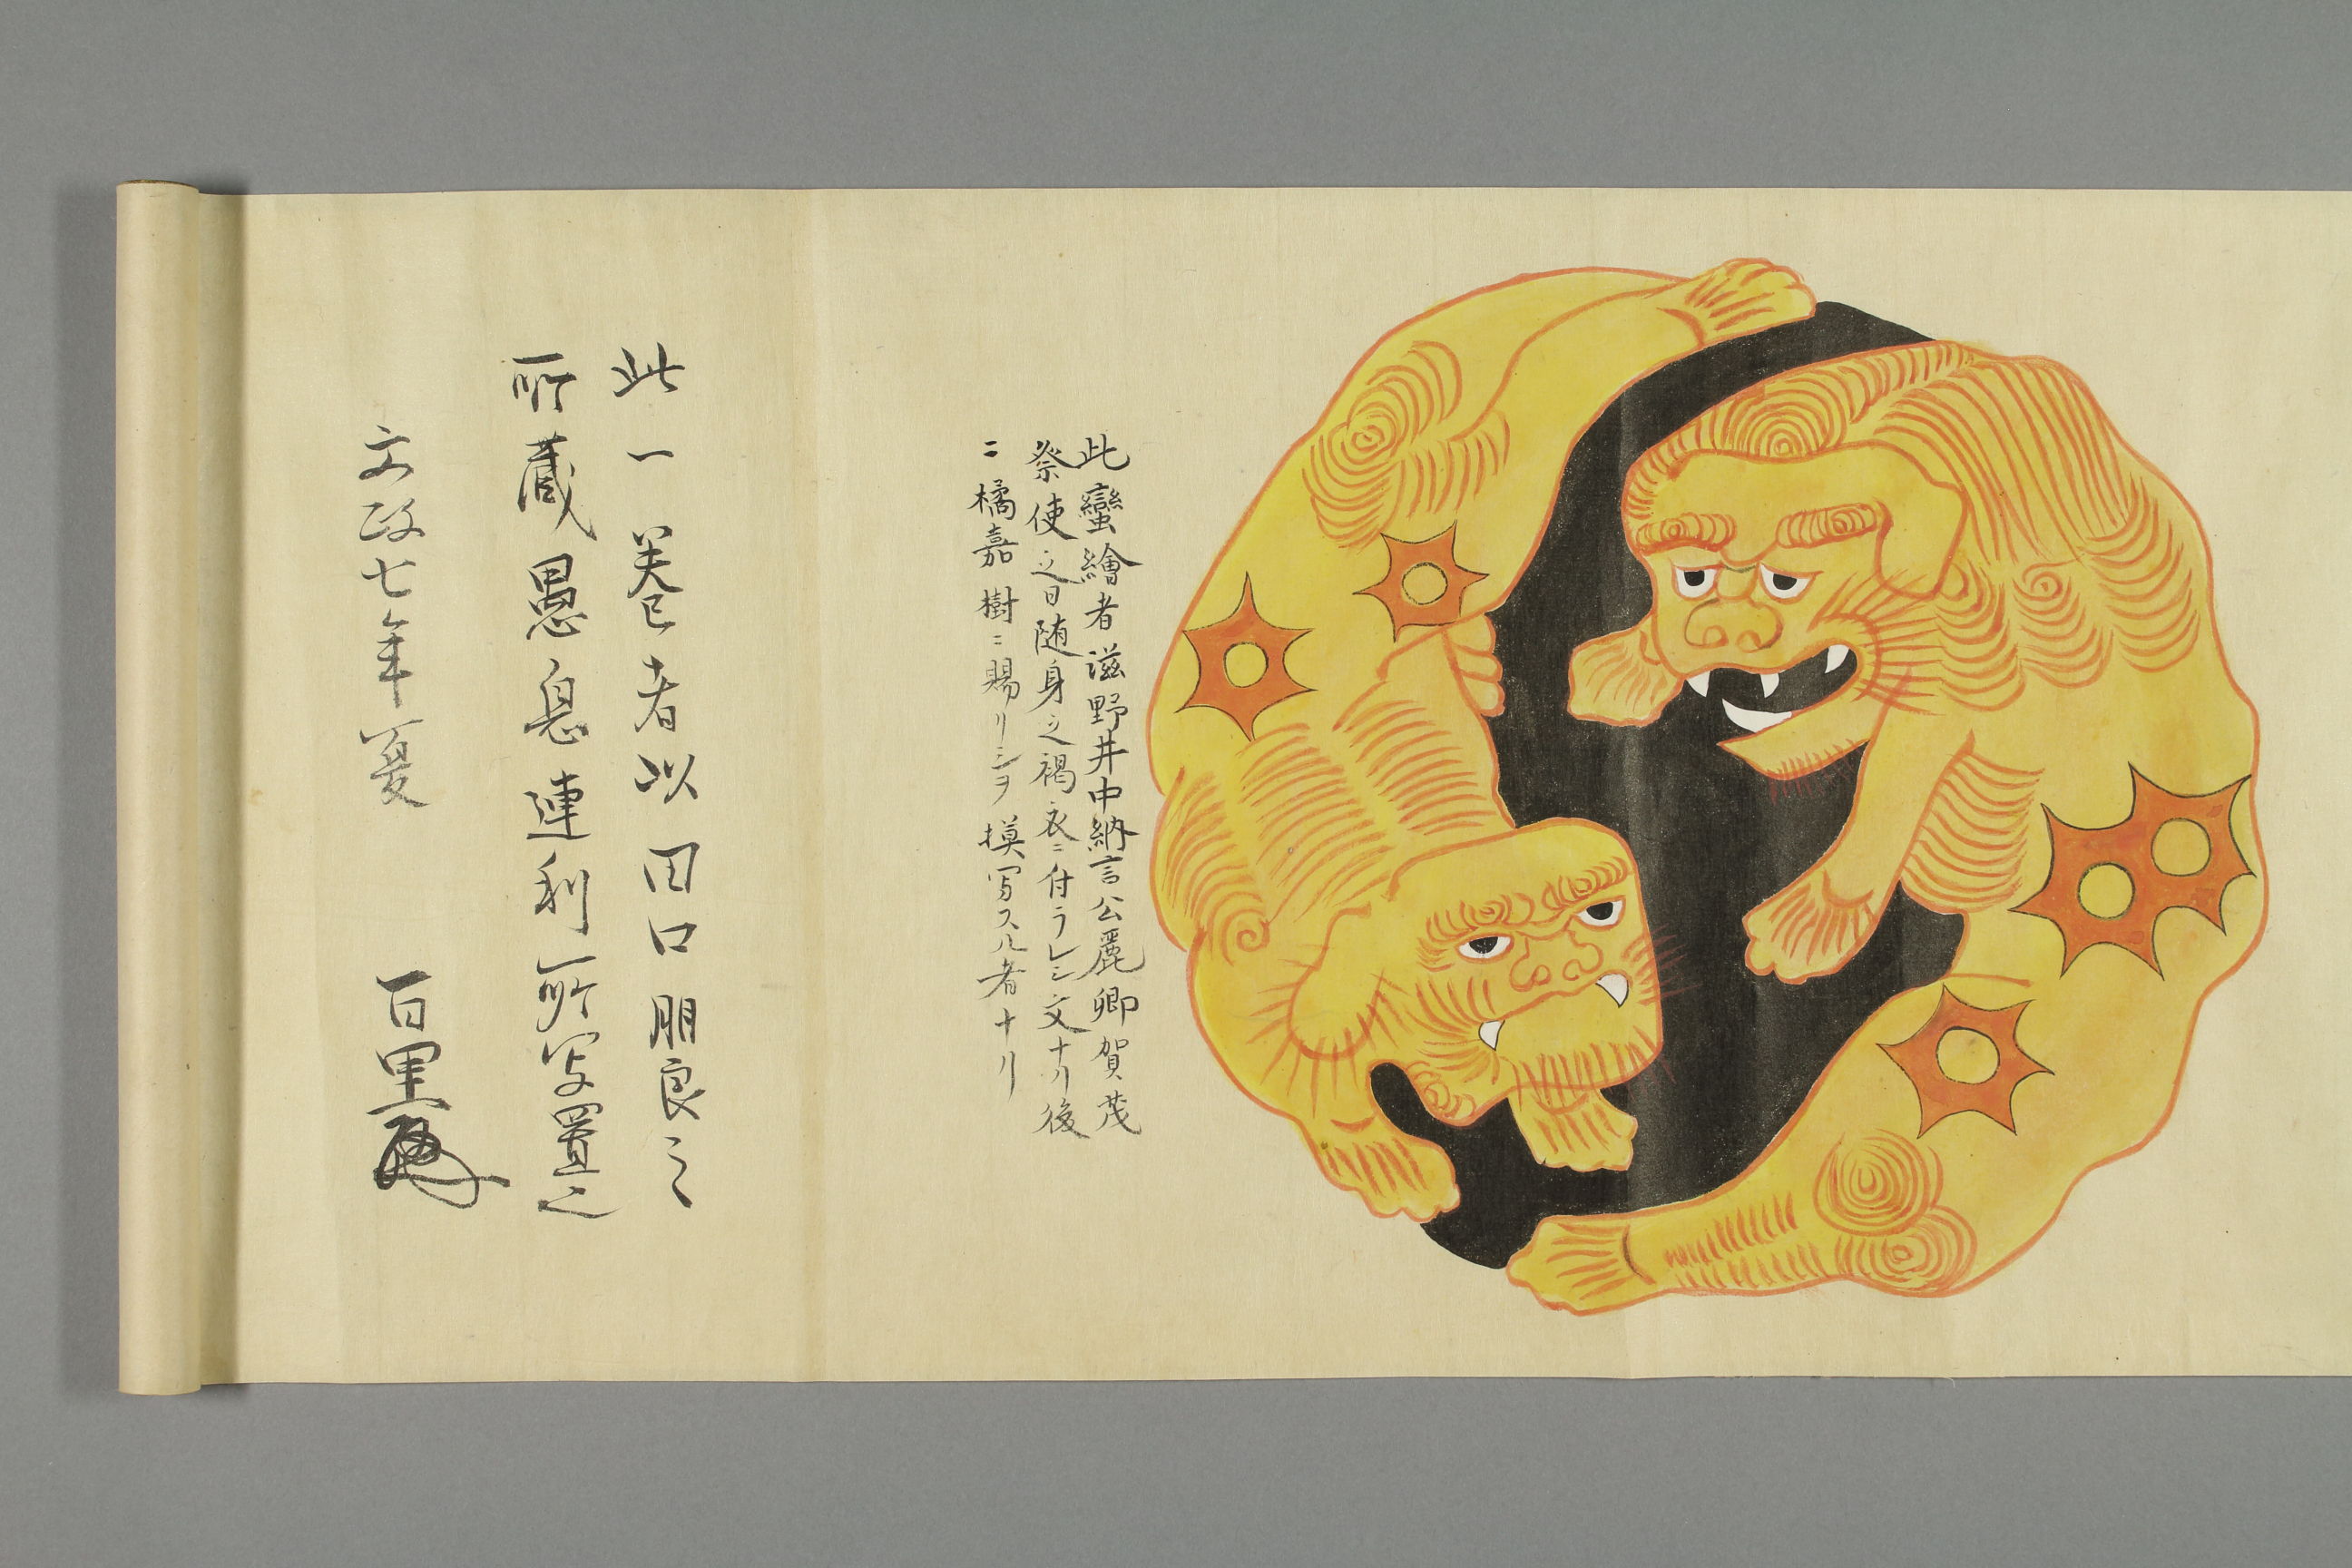 此蠻繪者滋野井中納言公麗卿賀茂
祭使之日随身之褐衣ニ付ラレシ文ナリ後
ニ橘嘉樹ニ賜リシヲ摸写スル者ナリ
此一巻者以田口朋良之
所蔵愚息連利所写置之
文政七年夏
百里